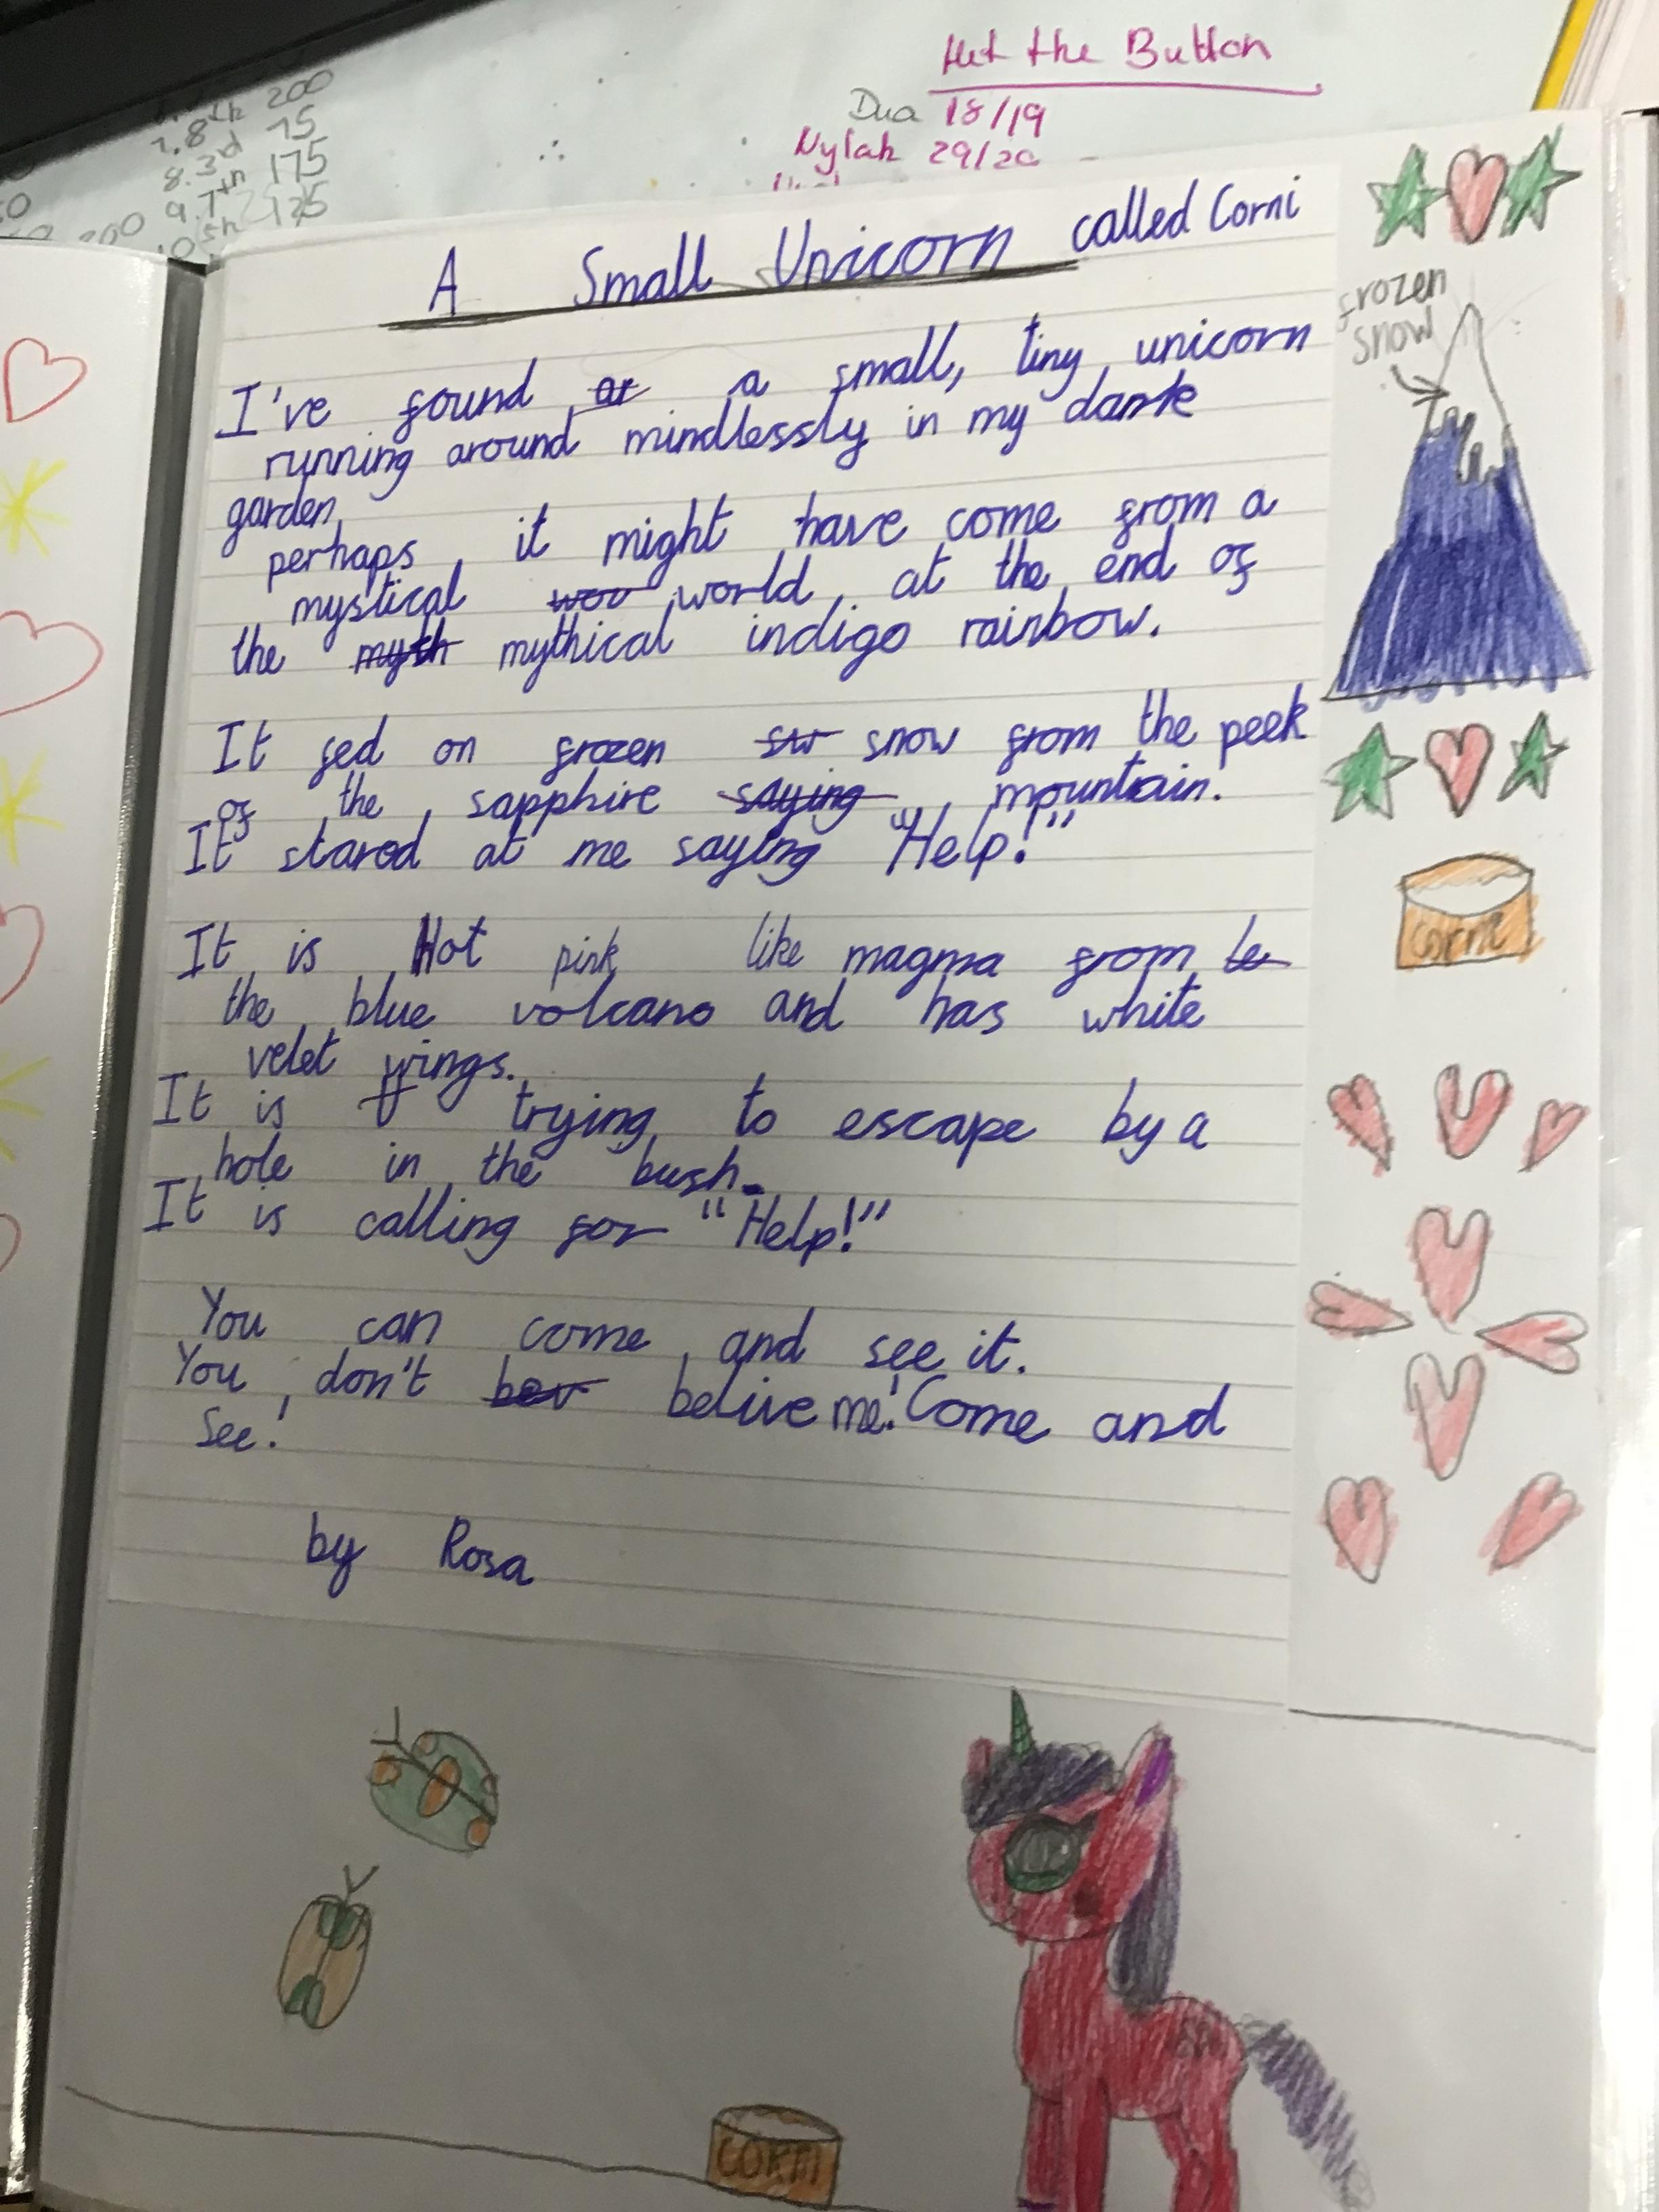 Hit the Button
Dua 18/19
Nylah 29/20
200
7.8th 75
8.3rd 175
9.7th 125
200
A Small Unicorn called Corni
I've found a small, tiny unicorn
running around mindlessly in my dark
garden,
perhaps it might have come from a
mystical wor world at the end of
the myth mythical indigo rainbow.
It fed on frozen sw snow from the peek
of the sapphire saying mountain.
It stared at me saying "Help!"
It is Hot pink like magma from
the blue volcano and has white
velet wings.
It is trying to escape by a
hole in the bush.
It is calling for "Help!"
You can come and see it.
You don't belive me! Come and
See!
by Rosa
frozen
snow
corni
CORNI